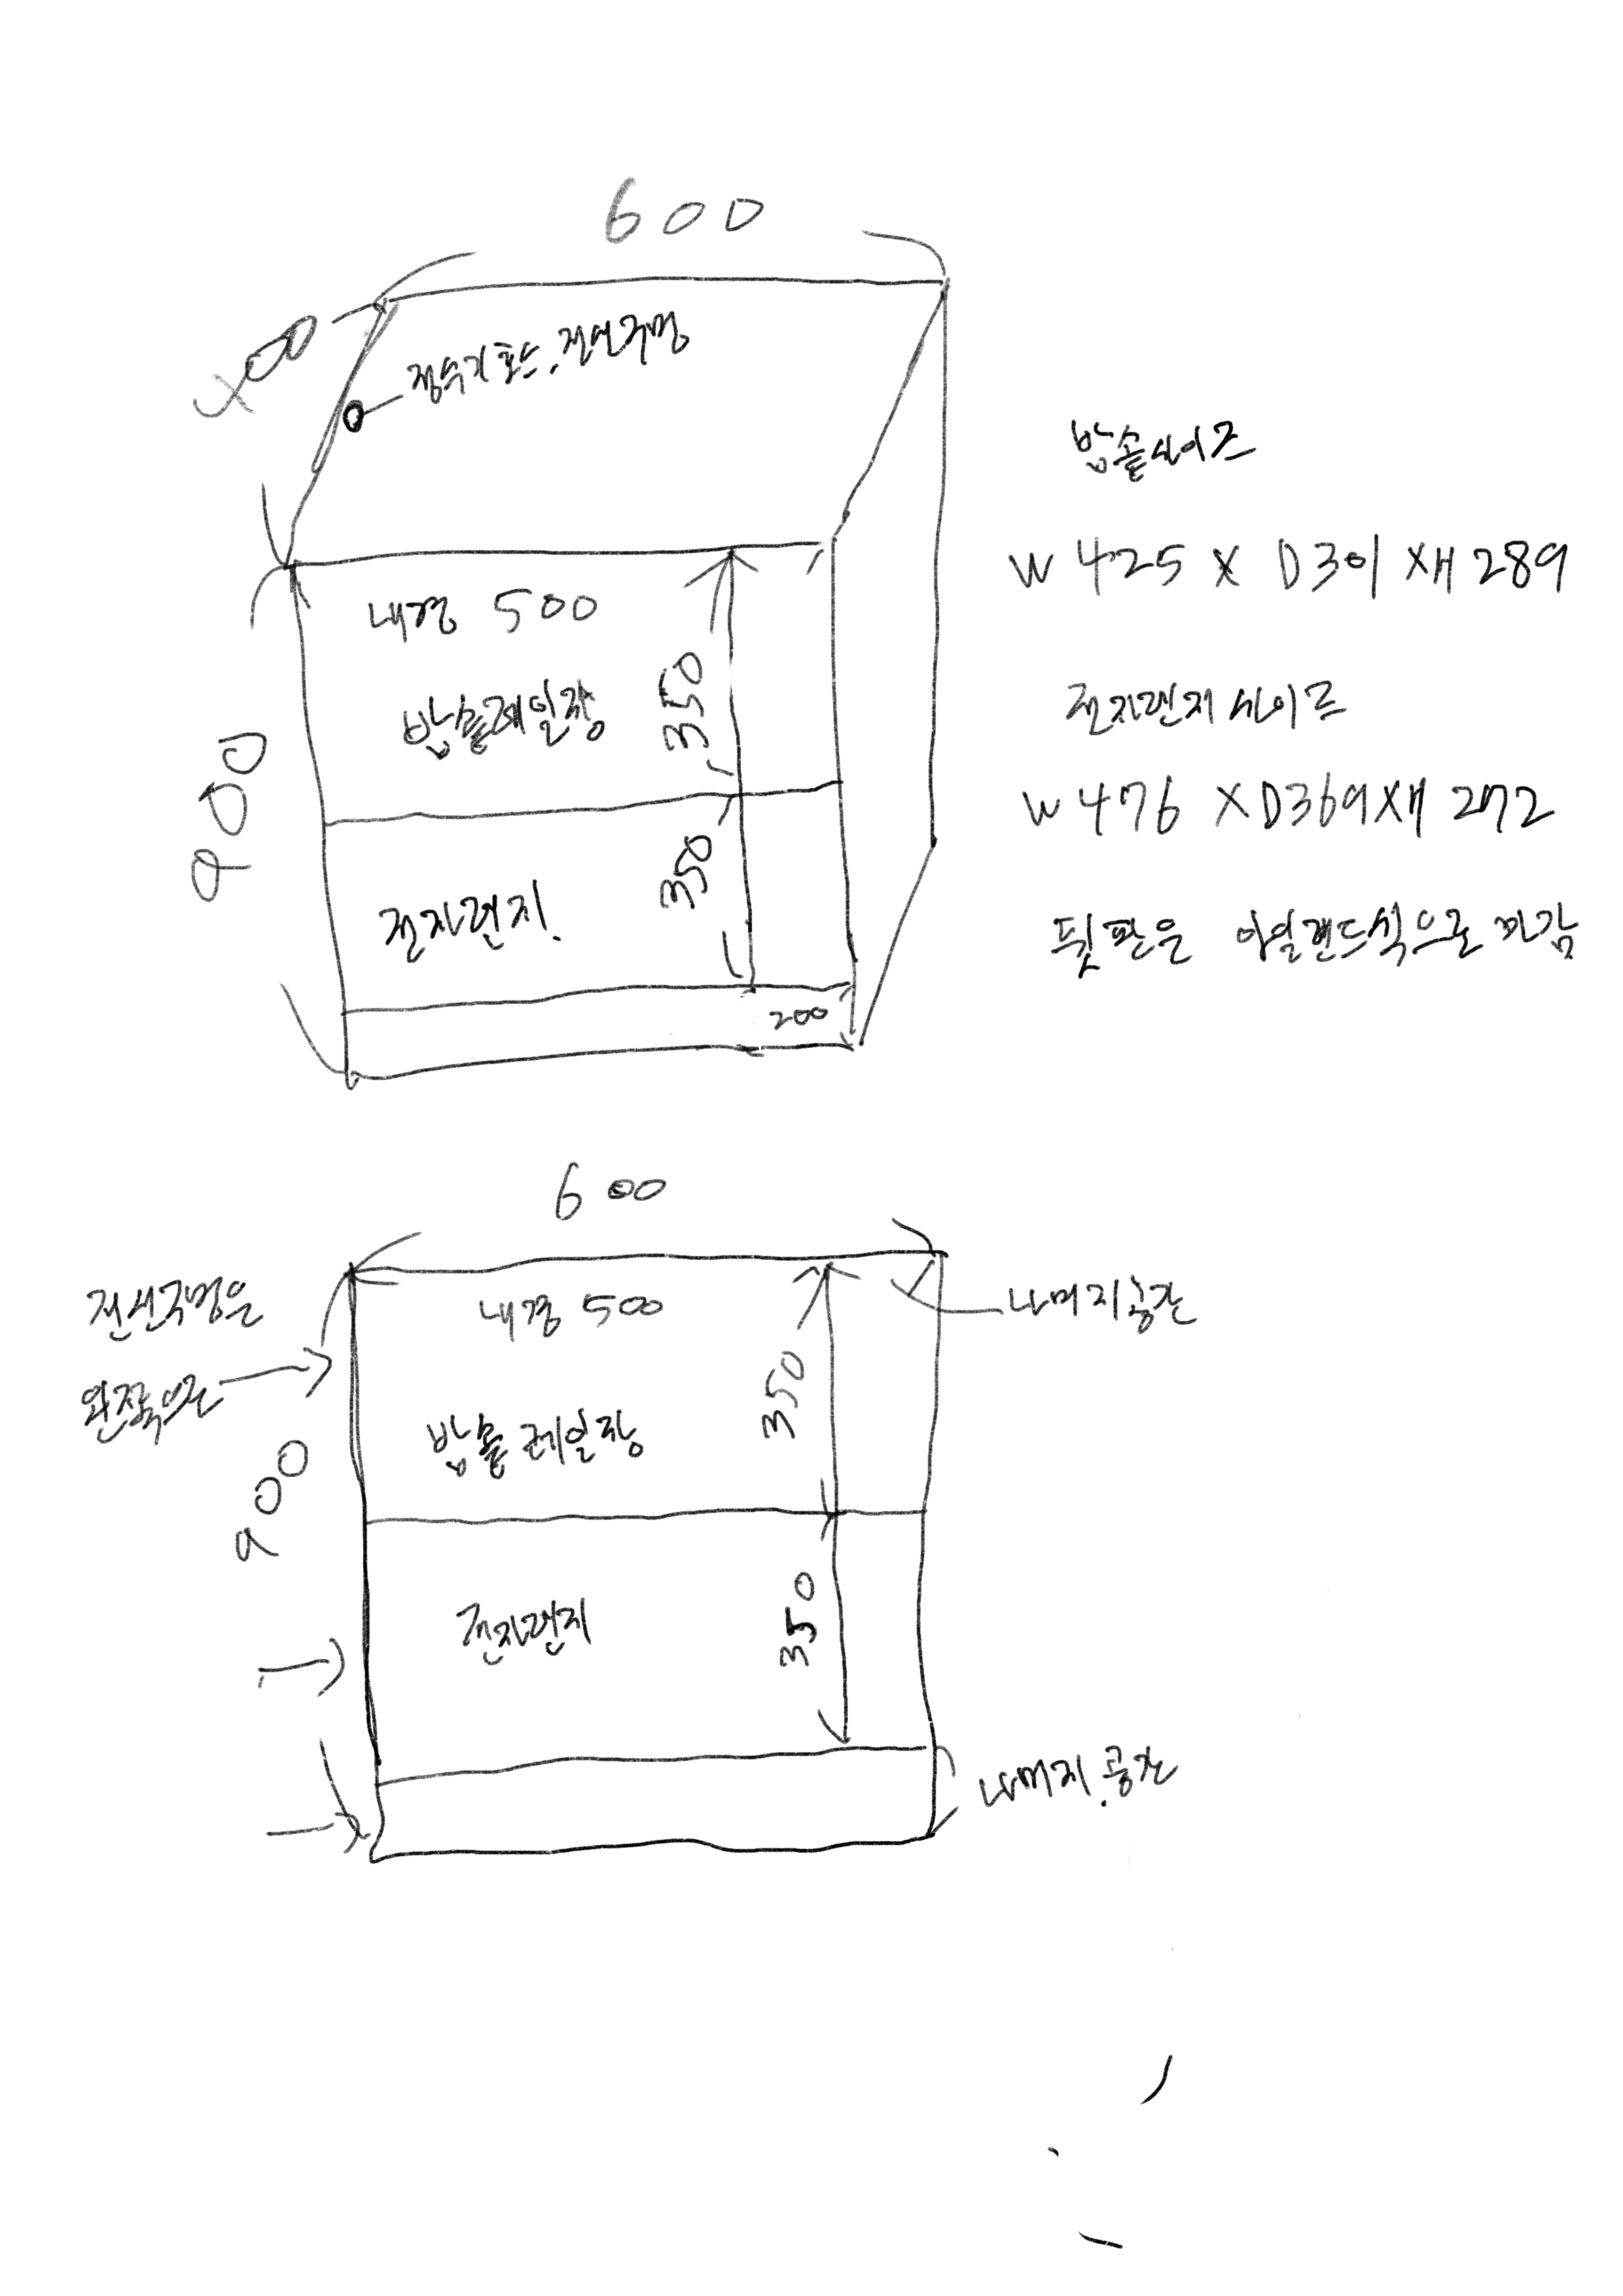 600
400
정수기호스, 전선구멍
내경 500
밥솥레일장
350
900
전자렌지.
350
200
밥솥사이즈
W 425 X D301 XH 289
전자렌지 사이즈
W 476 X D369 XH 272
뒷판은 아일랜드식으로 마감
600
전선구멍은
왼쪽으로
내경 500
나머지공간
350
밥솥 레일장
900
전자렌지
350
나머지.공간